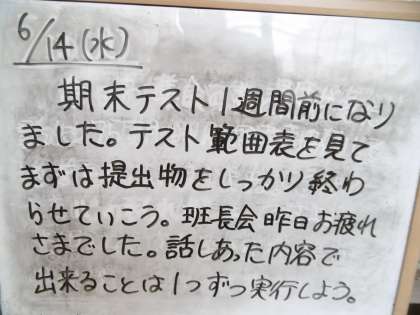 6/14(水)
期末テスト1週間前になり
ました。テスト範囲表を見て
まずは提出物をしっかり終わ
らせていこう。班長会昨日お疲れ
さまでした。話しあった内容で
出来ることは1つずつ実行しよう。